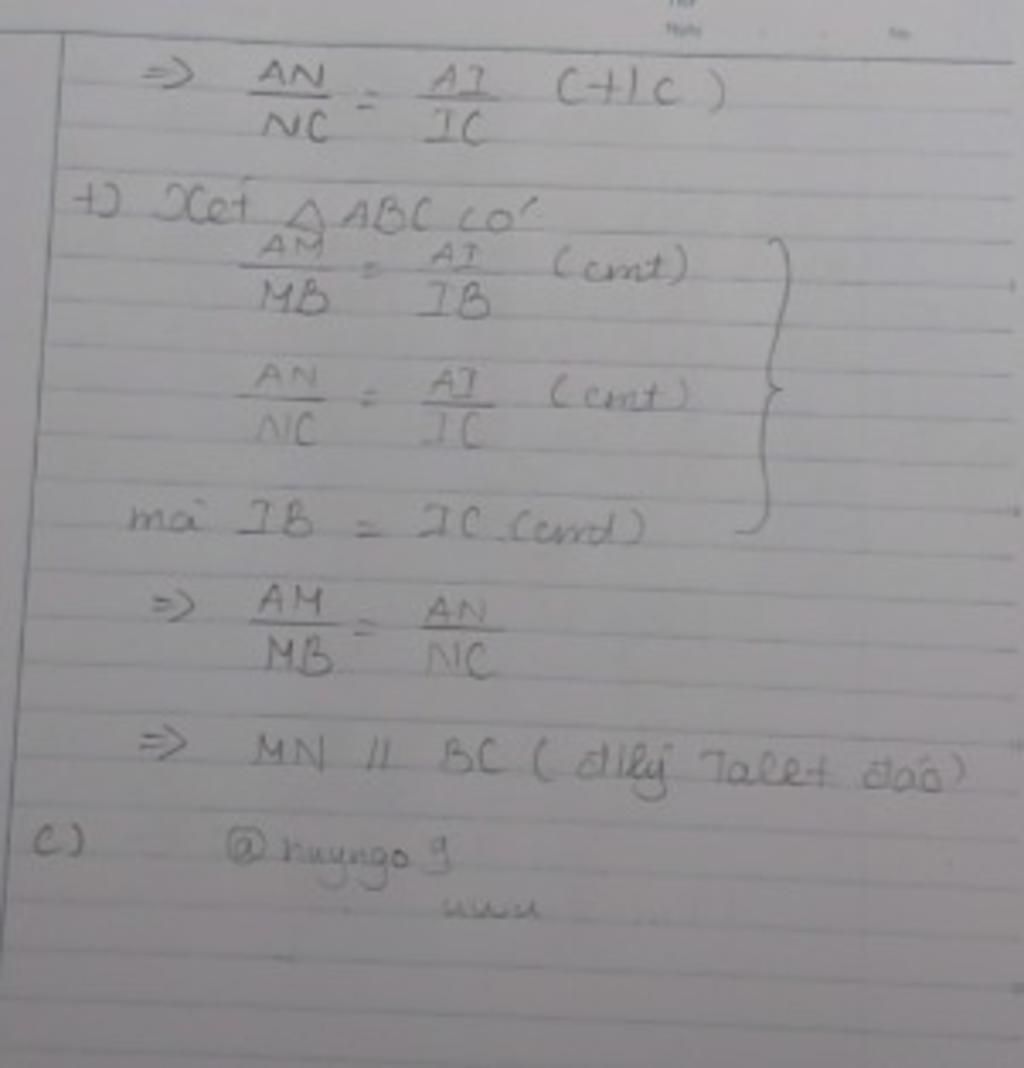 => AN/NC = AI/IC (t/c)
+) Xét △ ABC có
AM/MB = AI/IB (cmt)
AN/NC = AI/IC (cmt)
mà IB = IC (cmt)
=> AM/MB = AN/NC
=> MN // BC (đ/lý Talet đảo)
c) @huyngo9
uwu